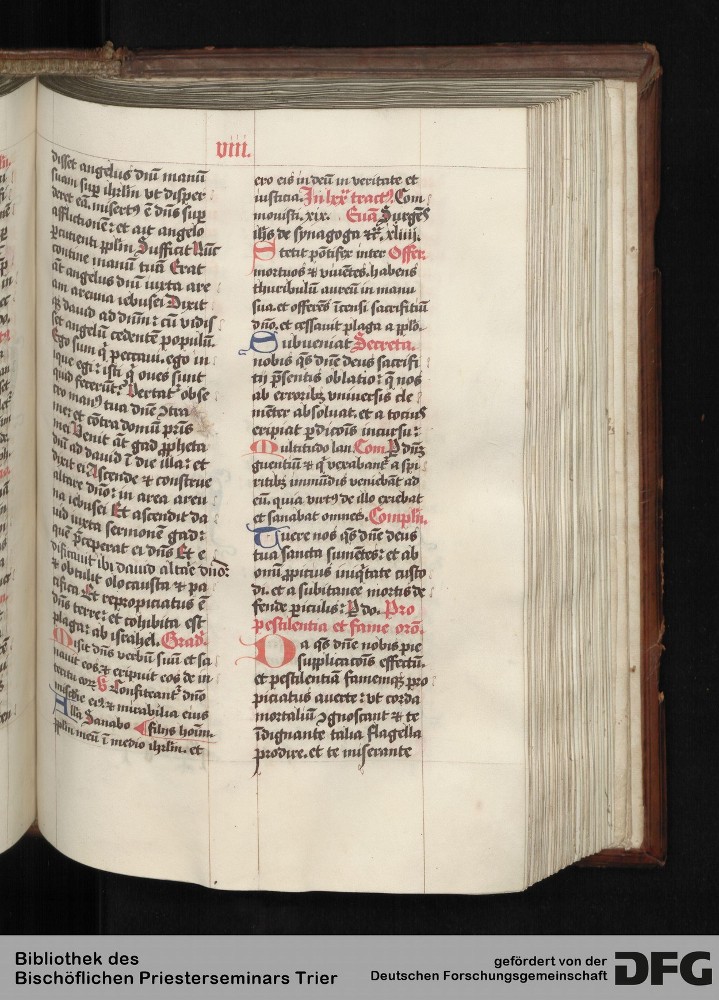 viii.
disset angelus dn̄i manū
suam sup̲ ihrlm̄ vt disper
deret eā. misert᷒ ē dn̄s sup̲
afflictionē: et ait angelo
p̲cutienti pplm̄ Sufficit Nūc
contine manū tuā Erat
āt angelus dn̄i iuxta are
am areuna iebusei Dixit
q̲ȝ dauid ad dn̄m: cū vidis
set angelū cedentē populū.
Ego sum q̇ peccaui. ego in
ique egi: isti q̇ oues sunt
quid fecerūt? Vertat᷑ obse
cro man᷒ tua dn̄e ꝯtra
me: et cōtra domū pr̄is
mei Venit āt gad ꝓpheta
dn̄i ad dauid ī die illa: et
dixit ei Ascende et construe
altare dn̄o: in area areu
na iebusei Et ascendit da
uid iuxta sermonē gad:
quē p̄ceperat ei dn̄s Et e
dificauit ibi dauid altāe dn̄o:
⁊ obtulit olocausta ⁊ pa
cifica Et repropiciatus ē
dn̄s terre: et cohibita est
plaga: ab israhel. Grad̄.
Misit dn̄s verbū suū et sa
nauit eos ⁊ eripuit eos de in
teritu eorꝝ ꝟ Confiteant᷑ dn̄o
mīcdie ei᷒ ⁊ mirabilia eius
Alla Sanabo filijs hoīm.
pplm̄ meū ī medio ihrlm̄. et
ero eis in deū in veritate et
iusticia. In lxx͛ tract᷒. Com
monisti. xix. Euā Surgēs
ihs de synagoga ⁊c͛. xliiij.
Stetit pōtifex inter Offer.
mortuos ⁊ viuētes. habens
thuribulū aureū in manu
sua. et offerēs īcensi sacrificiū
dn̄o. et cessauit plaga a pplo.
Subueniat Secreta.
nobis q̄s dn̄e deus sacrifi
cij p̄sentis oblatio: q̄ nos
ab erroribȝ vniuersis cle
mēter absoluat. et a tocius
eripiat p̲dicōis incursu:
Multitudo lan. Com P̲ dn̄ȝ
guentiū ⁊ q̇ vexabant᷑ a spi
ritibȝ immūdis veniebāt ad
eū. quia virt᷒ de illo exiebat
et sanabat omnes. Complēn.
Tuere nos q̄s dn̄e deus
tua sancta sumētes: et ab
omī ꝓpicius iniq̇tate custo
di. et a subitanee mortis de
fende p̲iculis: P̲ do. Pro
pestilentia et fame orō.
Da q̄s dn̄e nobis pie
supplicacōis effectū.
et pestilentiā famemqȝ pro
piciatus auerte: vt corda
mortaliū ꝯgnoscant ⁊ te
īdignante talia flagella
prodire. et te miserante
Bibliothek des
Bischöflichen Priesterseminars Trier
gefördert von der
Deutschen Forschungsgemeinschaft
DFG